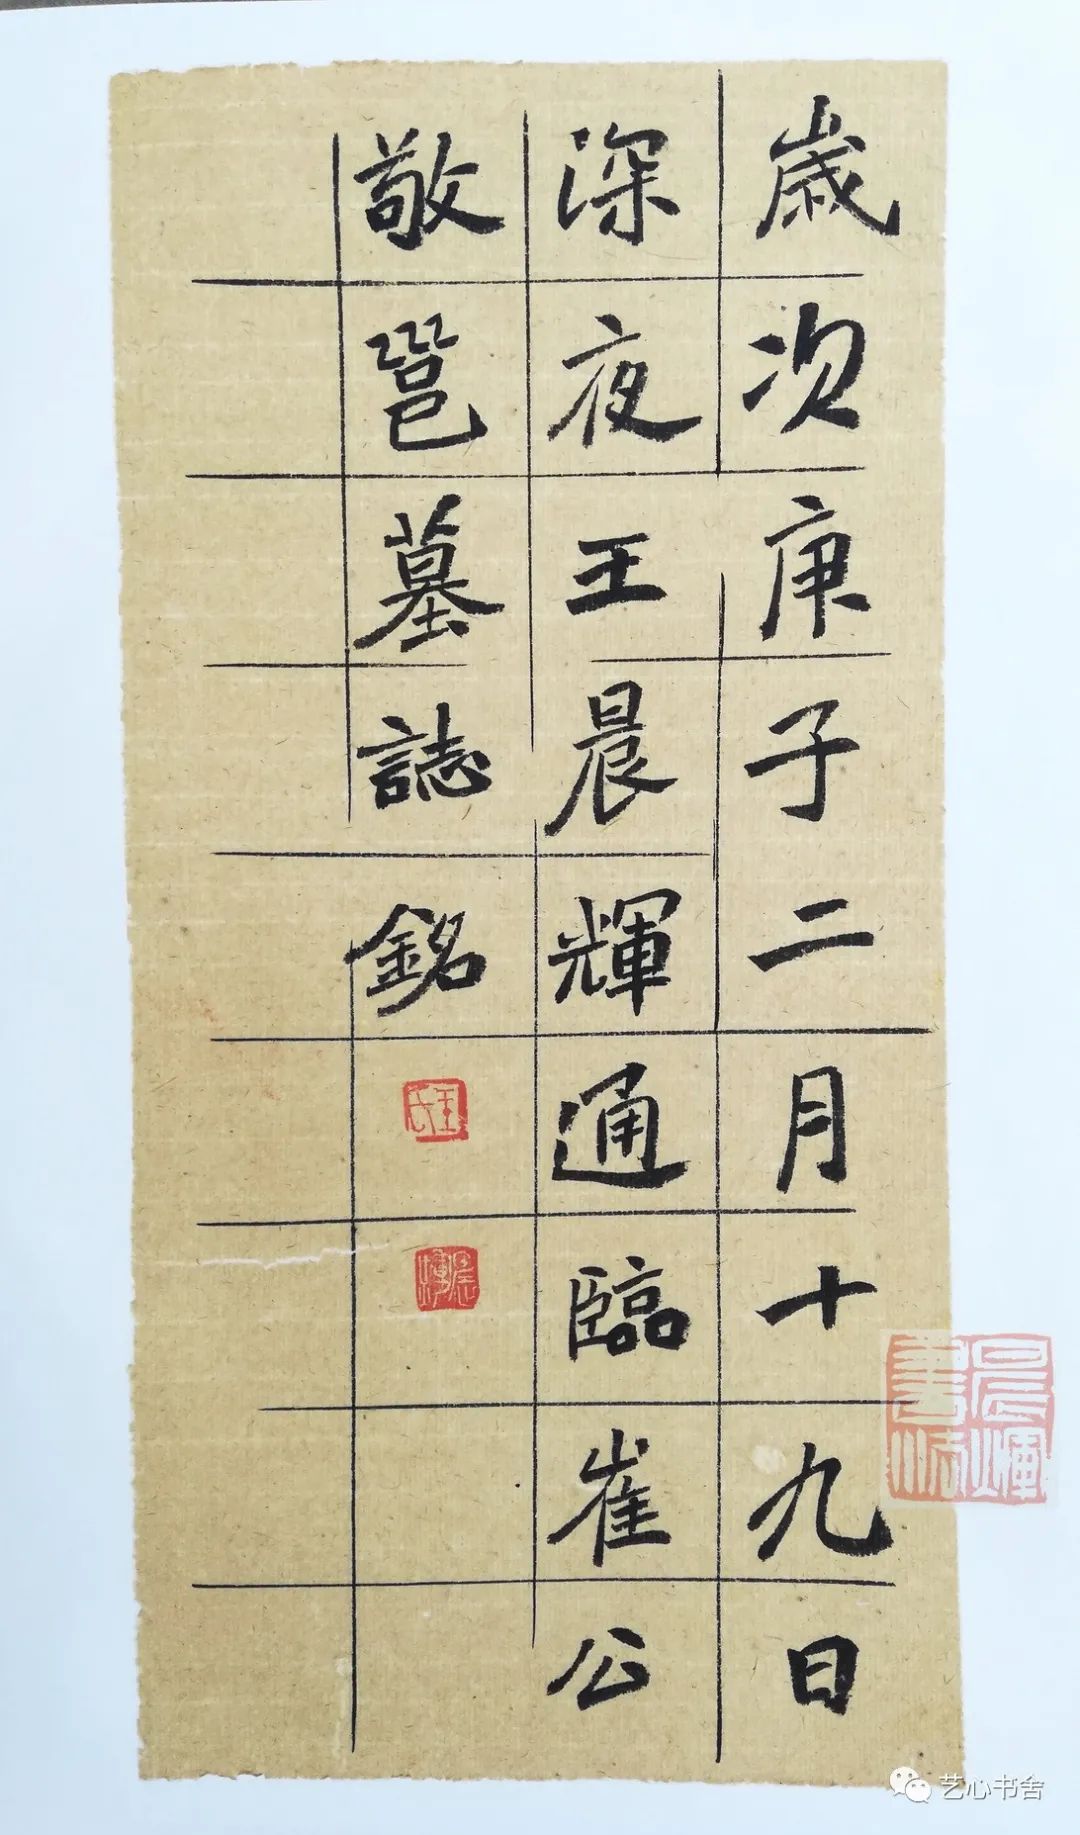 歲次庚子二月十九日
深夜王晨輝通臨崔公
敬邕墓誌銘
王氏
晨輝
晨輝
艺心书舍